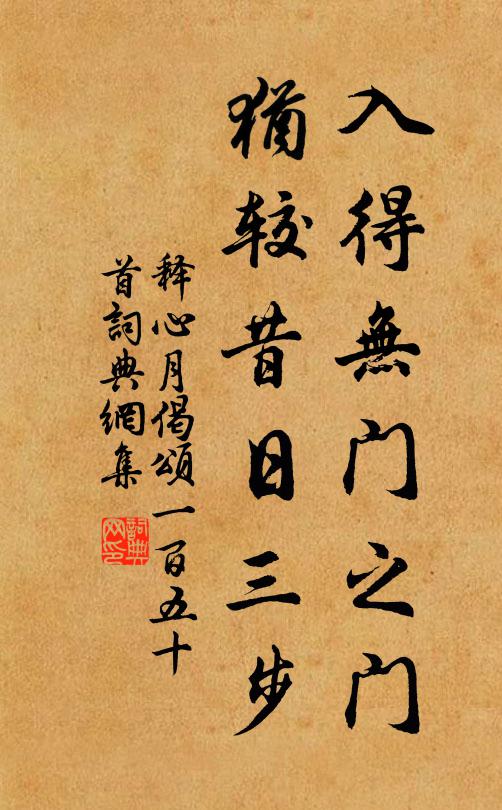 入得無门之门
猶较昔日三步
释心月偈頌一百五十
首詞典網集
詞典网印